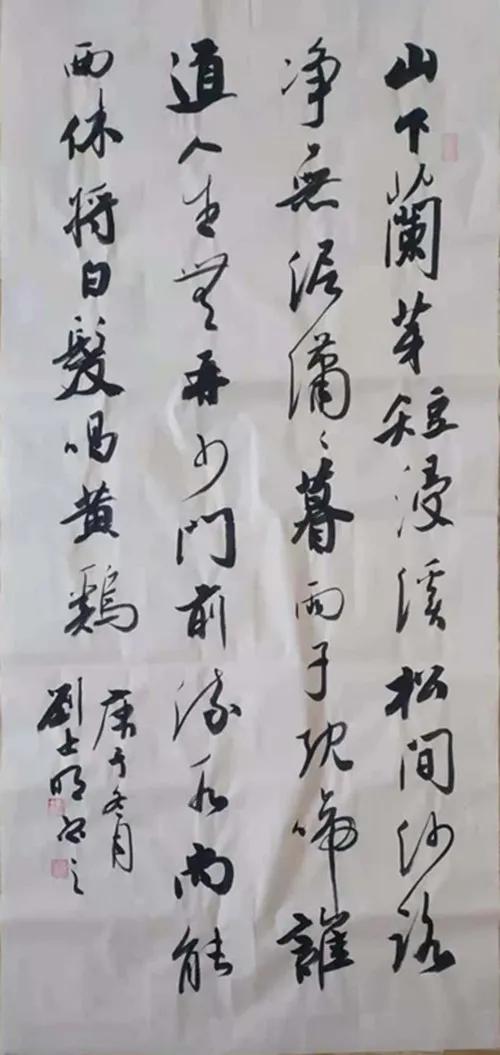 山下蘭芽短浸溪松間沙路
净無泥瀟〻暮雨子規啼誰
道人生無再少門前流水尚能
西休將白髮唱黄鷄
庚子冬月
劉士明书之